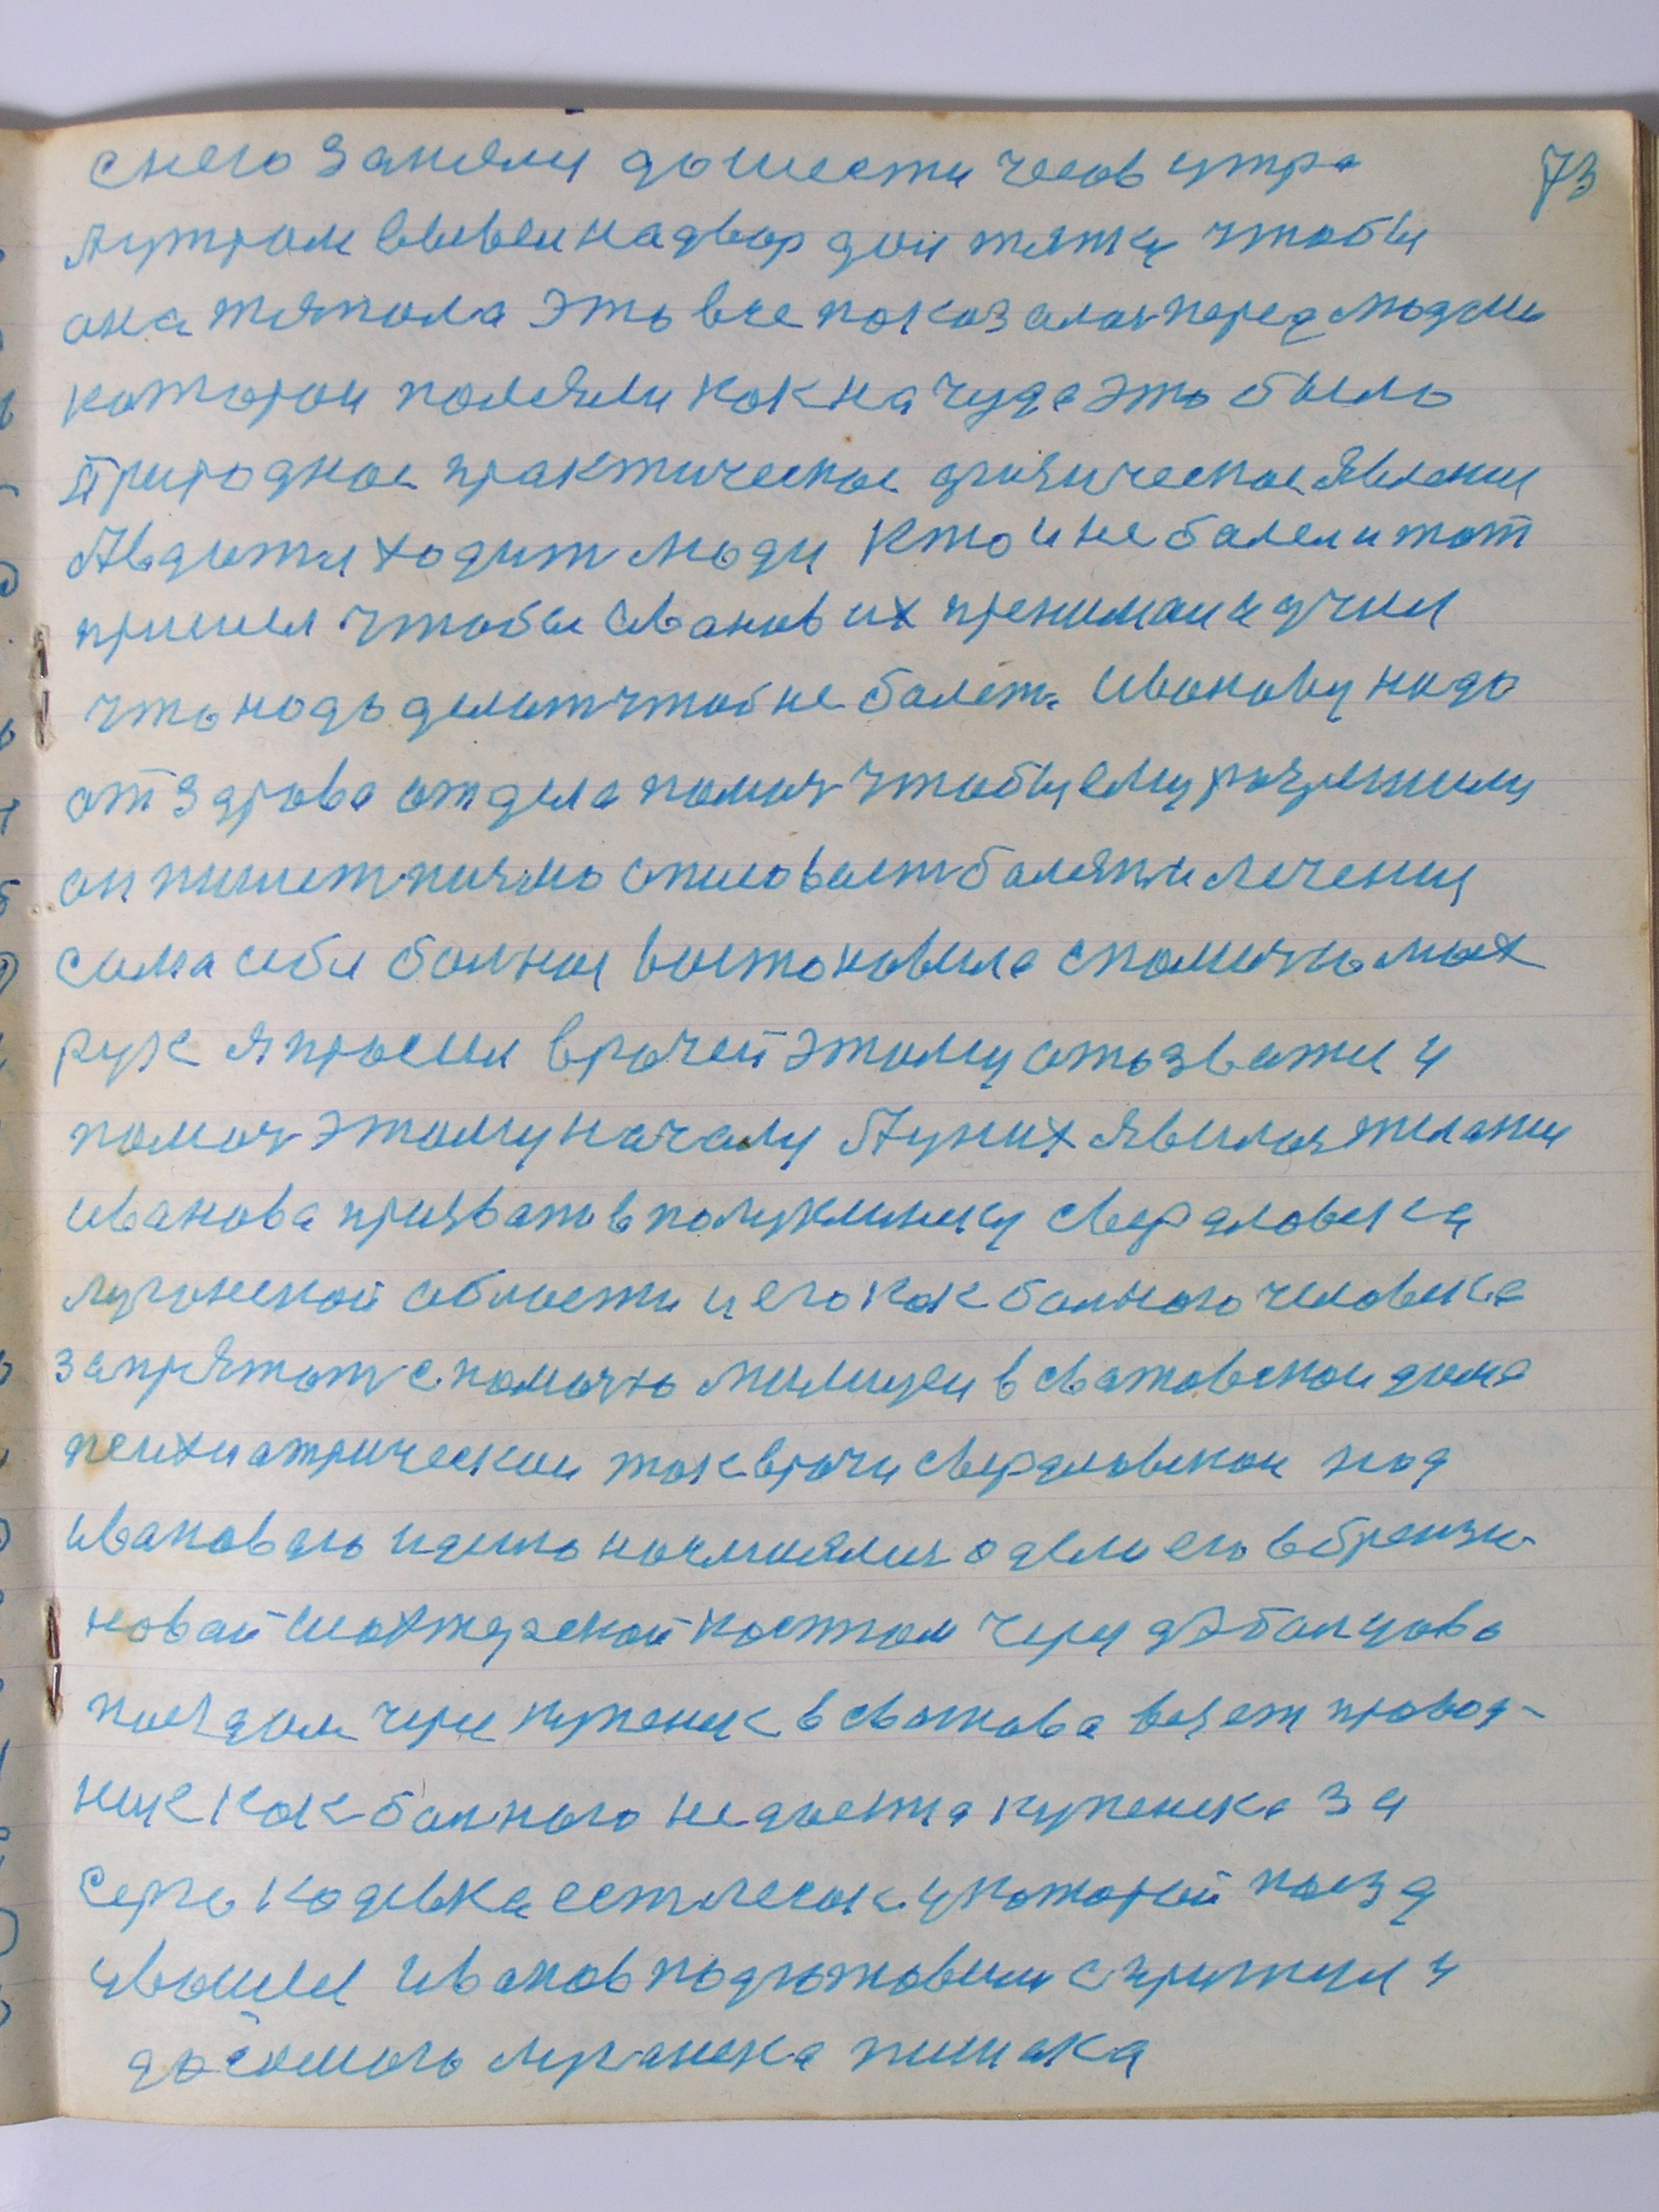 73
снего заняли до шести часов утра
Аутром вывели надвор дои тяпку чтобы
она тяпола это все показалос перед людми
которои помеяли как на чуда это было
Природное практическое физическое явления
Авдоти ходит люди Кто и не болел и тот
пришел чтобы Иванов их пренимаи и учил
что надо делат чтоб не болеть Иванову надо
от здрова отдела помоч чтобы ему розрешили
он пишет писмо описовает болязни лечения
сама себя болная востоновила спомочю моих
рук Я просил врачей этому отозватц и
помоч этому началу Ауних явилос желания
Иванова призвать в поликлинику свердловска
луганской области и его как болного человека
запрятот спомочю милицеи в сватовской дома
психиатрическии так врачи свердловскои над
Ивановдю идеию насмиялис одели его в брензи-
новай шохтерской костюм через дэбалцова
поездом через купенск в сватова везет провод-
ник как болного недоежая купенска за
серго кадевка есть лесок укоторый поезд
ивошел Иванов подготовии спригнул и
до самого луганска пишака